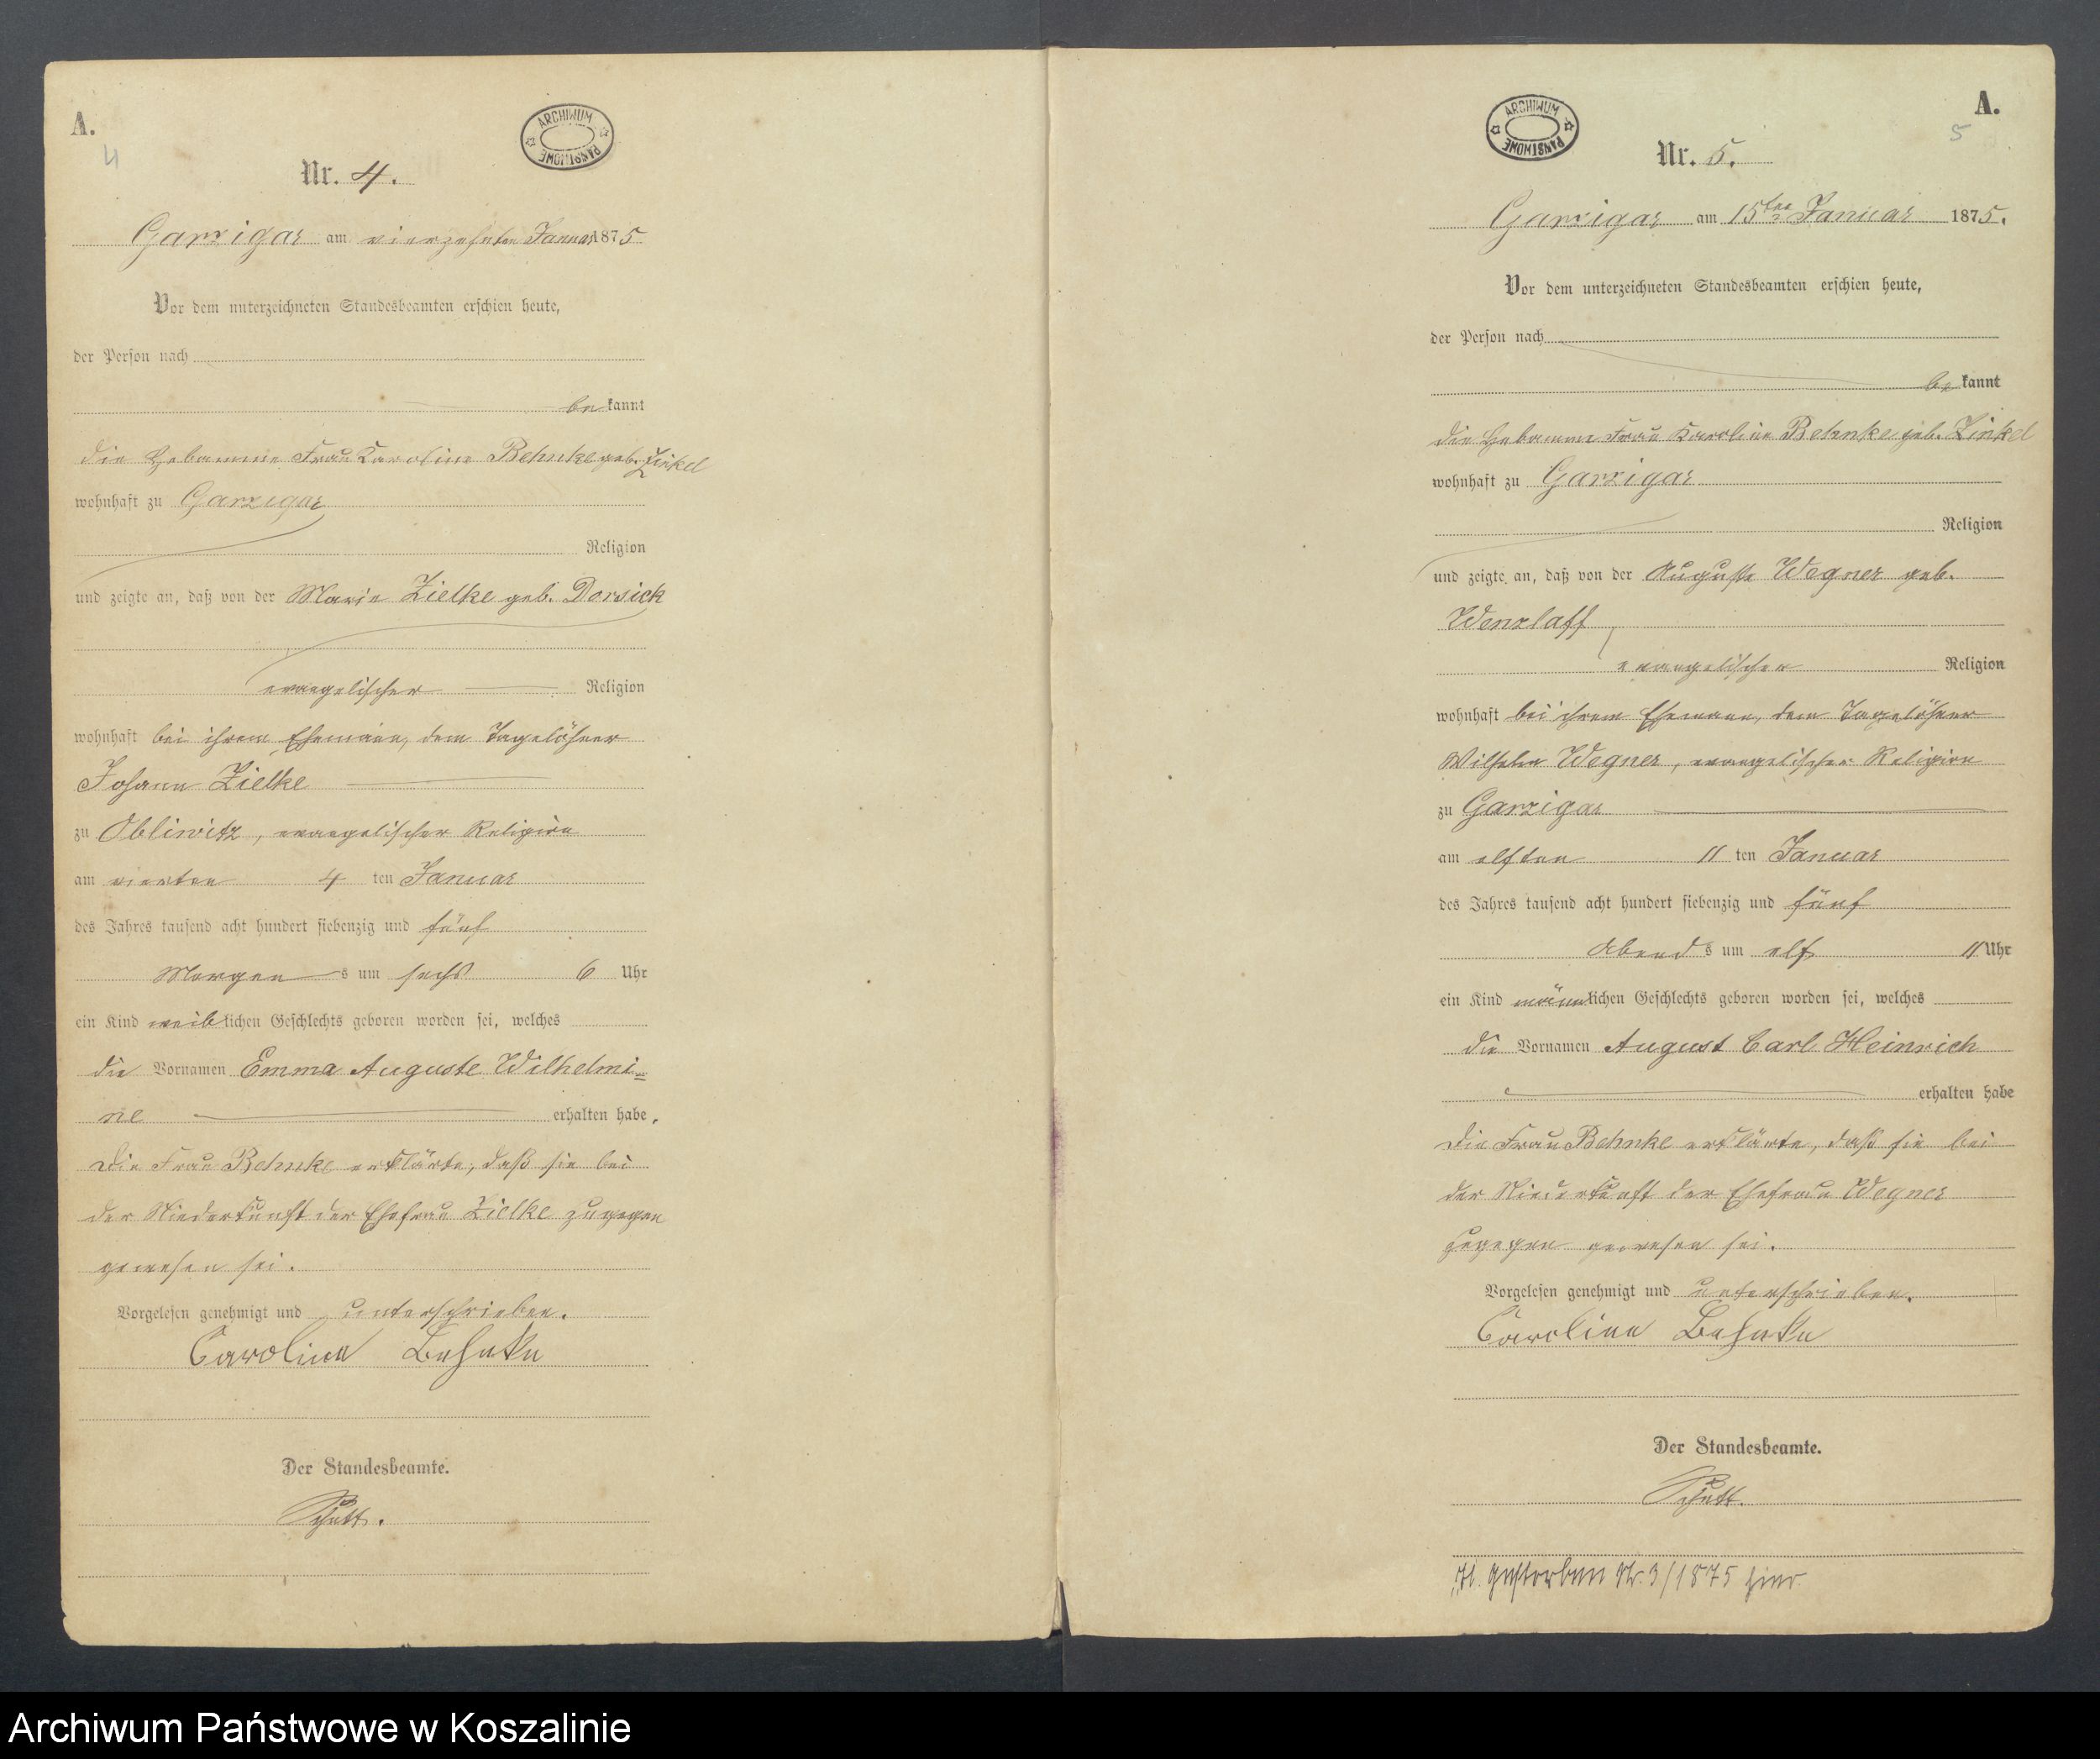 A.
4
ARCHIWUM PAŃSTWOWE
Nr. 4.
Garzigar am vierzehnten Januar 1875
Vor dem unterzeichneten Standesbeamten erschien heute,
der Person nach
bekannt
die Hebamme Frau Karoline Behnke geb. Zinkel
wohnhaft zu Garzigar
Religion
und zeigte an, daß von der Marie Zielke geb. Dorsick
evangelischer Religion
wohnhaft bei ihrem Ehemann, dem Tagelöhner
Johann Zielke
zu Obliwitz, evangelischer Religion
am vierten 4 ten Januar
des Jahres tausend acht hundert siebenzig und fünf
Morgens um sechs 6 Uhr
ein Kind weiblichen Geschlechts geboren worden sei, welches
die Vornamen Emma Auguste Wilhelmi=
ne erhalten habe.
Die Frau Behnke erklärte, daß sie bei
der Niederkunft der Ehefrau Zielke zugegen
gewesen sei.
Vorgelesen genehmigt und unterschrieben.
Caroline Behnke
Der Standesbeamte.
A.
5
ARCHIWUM PAŃSTWOWE
Nr. 5.
Garzigar am 15ten Januar 1875.
Vor dem unterzeichneten Standesbeamten erschien heute,
der Person nach
bekannt
die Hebamme Frau Karoline Behnke geb. Zinkel
wohnhaft zu Garzigar
Religion
und zeigte an, daß von der Auguste Wegner geb.
Wenzlaff
evangelischer Religion
wohnhaft bei ihrem Ehemann, dem Tagelöhner
Wilhelm Wegner, evangelischer Religion
zu Garzigar
am elften 11 ten Januar
des Jahres tausend acht hundert siebenzig und fünf
Abends um elf 11 Uhr
ein Kind männlichen Geschlechts geboren worden sei, welches
die Vornamen August Carl Heinrich
erhalten habe
Die Frau Behnke erklärte, daß sie bei
der Niederkunft der Ehefrau Wegner
zugegen gewesen sei.
Vorgelesen genehmigt und unterschrieben.
Caroline Behnke
Der Standesbeamte.
gestorben Nr. 3/1875 hier.
Archiwum Państwowe w Koszalinie